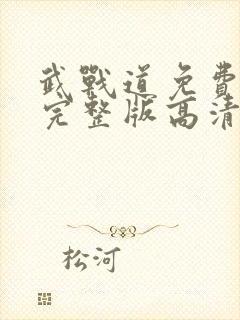 武戰道免費
完整版高清
松河